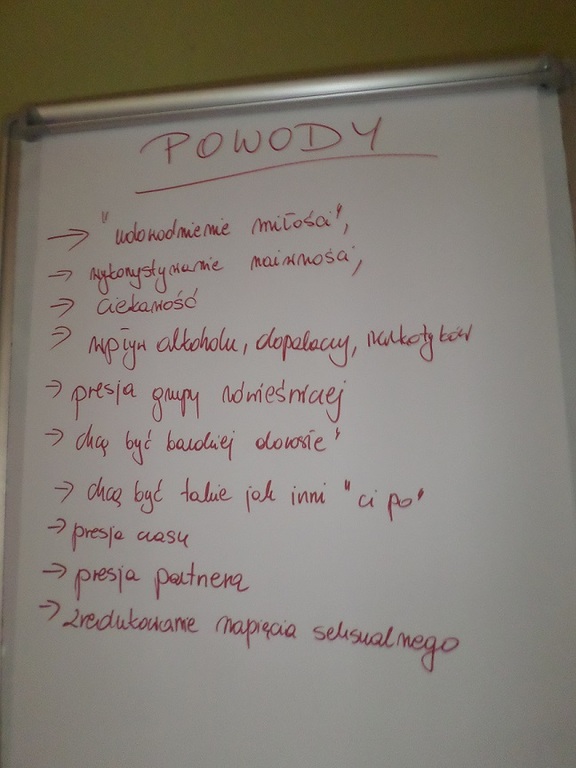 POWODY
→ "udowodnienie miłości",
→ wykorzystywanie naiwności,
→ ciekawość
→ wpływ alkoholu, dopalaczy, narkotyków
→ presja grupy rówieśniczej
→ chcą być bardziej dorosłe"
→ chcą być takie jak inni "ci po"
→ presja czasu
→ presja partnera
→ zredukowanie napięcia seksualnego